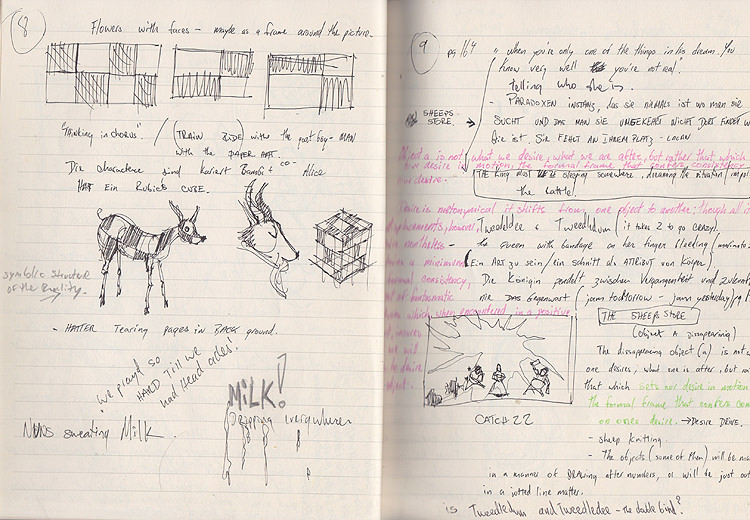 8
Flowers with faces – maybe as a frame around the picture.
"Thinking in chorus". / (TRAIN RIDE) with the goat boy – MAN
with the paper
Die charactere sind kariert Bambi + co – Alice
HAT Ein Rubics CUBE.
symbolic structure
of the Reality.
- HATTER Tearing pages in BACK ground.
"We played so
HARD Till we
had Head aches'.
MILK!
Dripping Everywhere
NUNS sweating Milk.
9
pg 164
" when you're only one of the things in his dream. You
know very well you're not real".
telling who she is.
SHEEPS
STORE.
- PARADOXEN INSTANZ, das sie niemals ist wo man sie
SUCHT UND DAS MAN SIE UMGEKEHRT NICHT DORT FINDET W
Sie ist. SIE FEHLT AN IHREM PLATZ - LACAN
Object a is not what we desire, what we are after, but rather that which
our desire in motion, the formal frame that confers consistency
our desire.
THE King must be sleeping somewhere, dreaming the situation /
the cattle
Desire is metonymical it shifts from one object to another; through all i
displacements, however,
Tweedeldee & Tweedeldum / it takes 2 to go crazy.
nonetheless
- the queen with bandage on her finger
a minimum
(Ein ART zu sein / ein schnitt als ATTRIBUT von Körper)
formal consistency,
Die Königin pendelt zwischen Vergangenheit und
of fantasmatic
nie DAS Gegenwart / jam tomorrow - jam yesterday
which when encountered in a positive
THE SHEEP STORE
(Object A dissapearing)
CATCH 22
The dissappearing object (a) is not
one desires, what one is after, but
that which sets our desire in motion
the formal frame that confers con
on ones desire. → DESIRE DRIVE.
- sheep knitting.
- The objects (some of them) will be
in a manner of DRAwing after numbers, or will be just out
in a dotted line matter.
is Tweedledum and Tweedledee - the double bind?